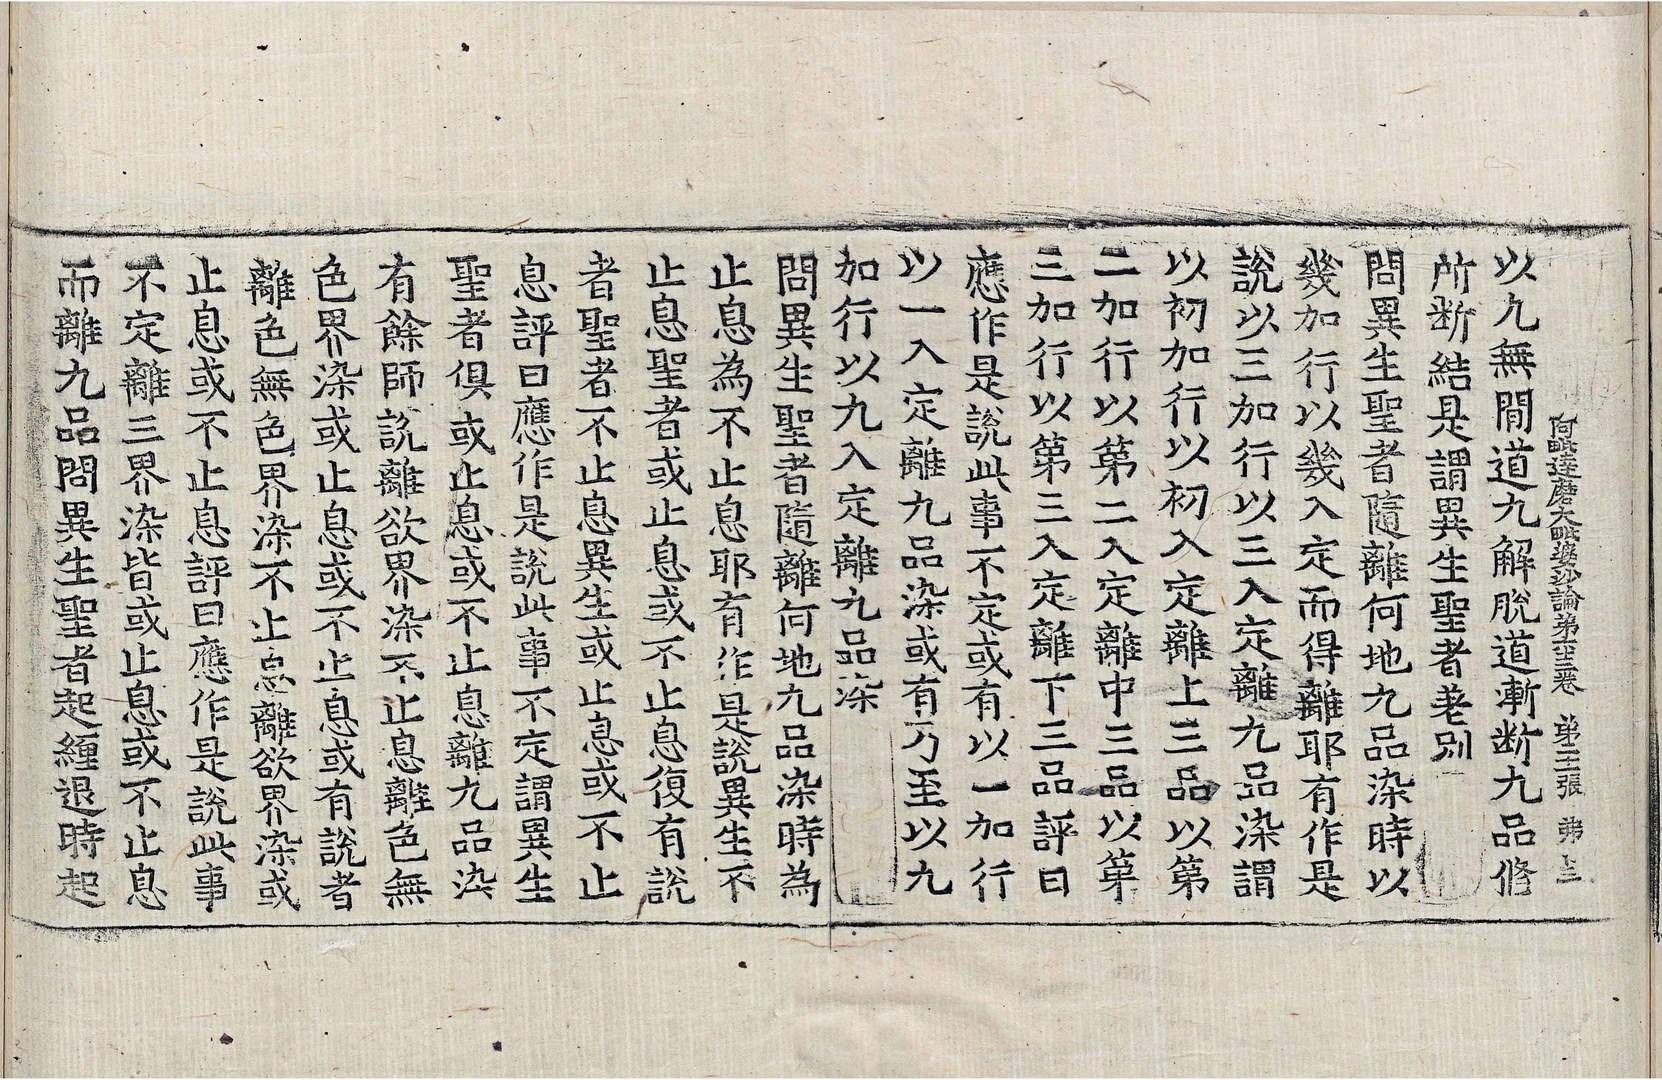 阿毗達磨大毗婆沙論第卷 第張 弟
以九無閒道九解脫道漸斷九品修
所斷結是謂異生聖者差別
問異生聖者隨離何地九品染時以
幾加行以幾入定而得離耶有作是
說以三加行以三入定離九品染謂
以初加行以初入定離上三品以第
二加行以第二入定離中三品以第
三加行以第三入定離下三品評曰
應作是說此事不定或有以一加行
以一入定離九品染或有乃至以九
加行以九入定離九品染
問異生聖者隨離何地九品染時為
止息為不止息耶有作是說異生不
止息聖者或止息或不止息復有說
者聖者不止息異生或止息或不止
息評曰應作是說此事不定謂異生
聖者俱或止息或不止息離九品染
有餘師說離欲界染不止息離色無
色界染或止息或不止息或有說者
離色無色界染不止息離欲界染或
止息或不止息評曰應作是說此事
不定離三界染皆或止息或不止息
而離九品問異生聖者起纏退時起